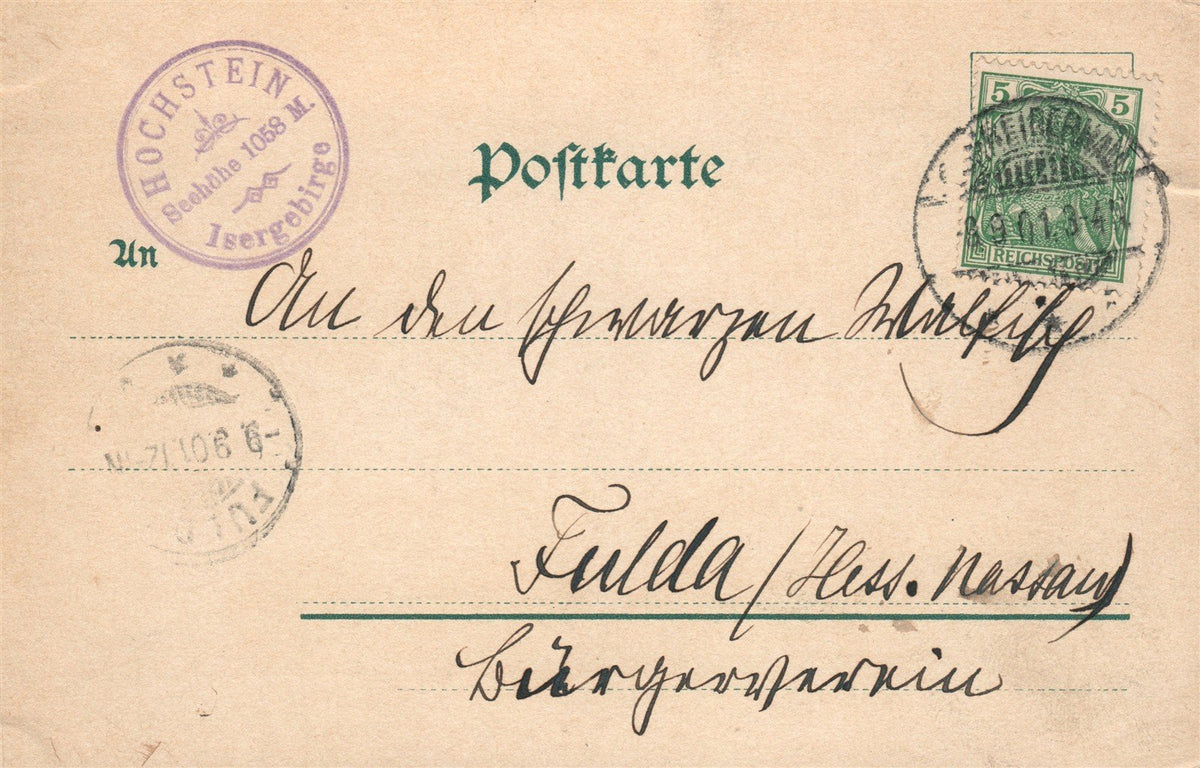 HOCHSTEIN
Seehöhe 1058 M.
Isergebirge
Postkarte
5 5
REICHSPOST
9.01. 3-4N
An
An den schwarzen Walfisch
9 9.01.12-1N
FULDA
Fulda (Hess. Nassau)
Bürgerverein